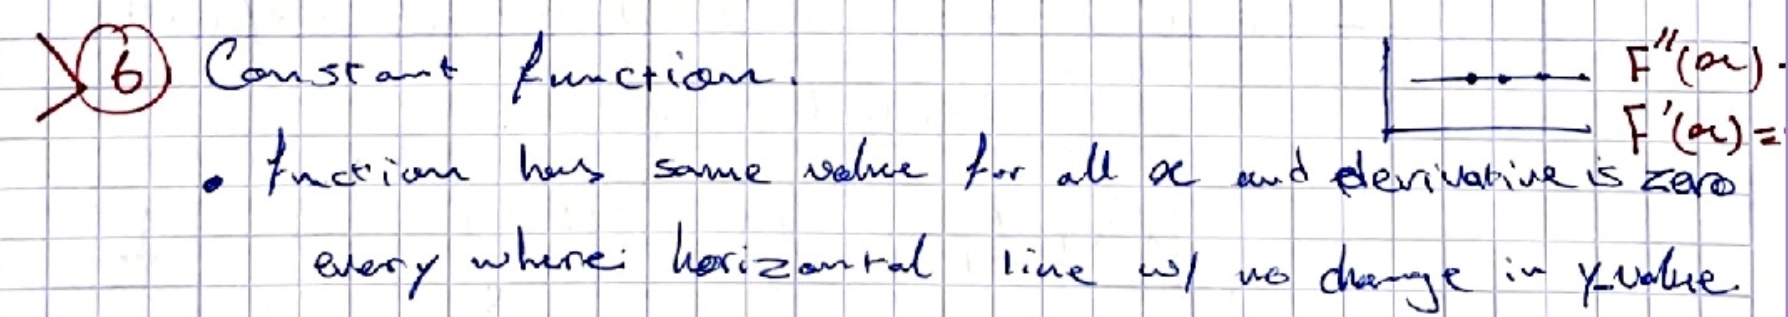 6 Constant function. F''(x).
F'(x) =
• fnction has same value for all x and derivative is zero
every where: horizontal line w/ no change in y-value.